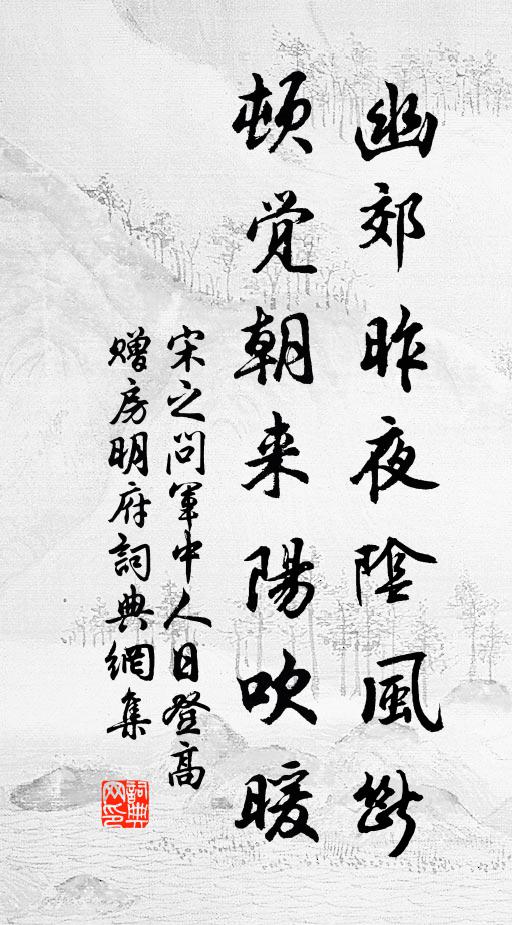 幽郊昨夜陰風斷
頓覺朝来陽吹暖
宋之问軍中人日登高
贈房明府詞典網集
詞典
网印